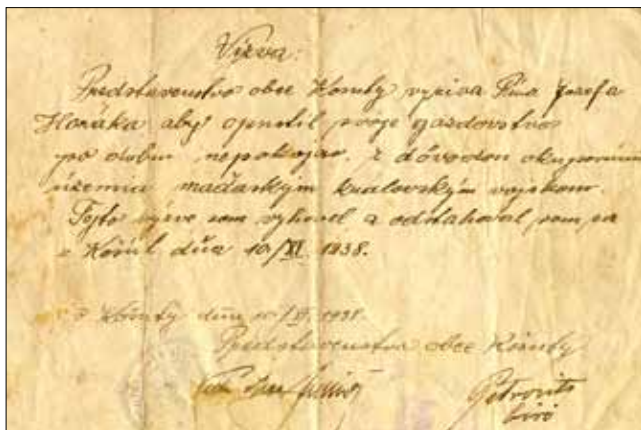 Výzva:
Predstavenstvo obce Kosuty vyziva Pána Jozefa
Horáka aby opustil svoje gazdovstvo
po dobu nepokojov. z dôvodou okupovania
územia maďarským královským vojskom.
Tejto výzve som vyhovel a odsťahoval som sa
z Košút dňa 10/XI. 1938.
z Košúty dňa 10/XI. 1938.
Predstavenstvo obce Košúty
Petrovits
biró